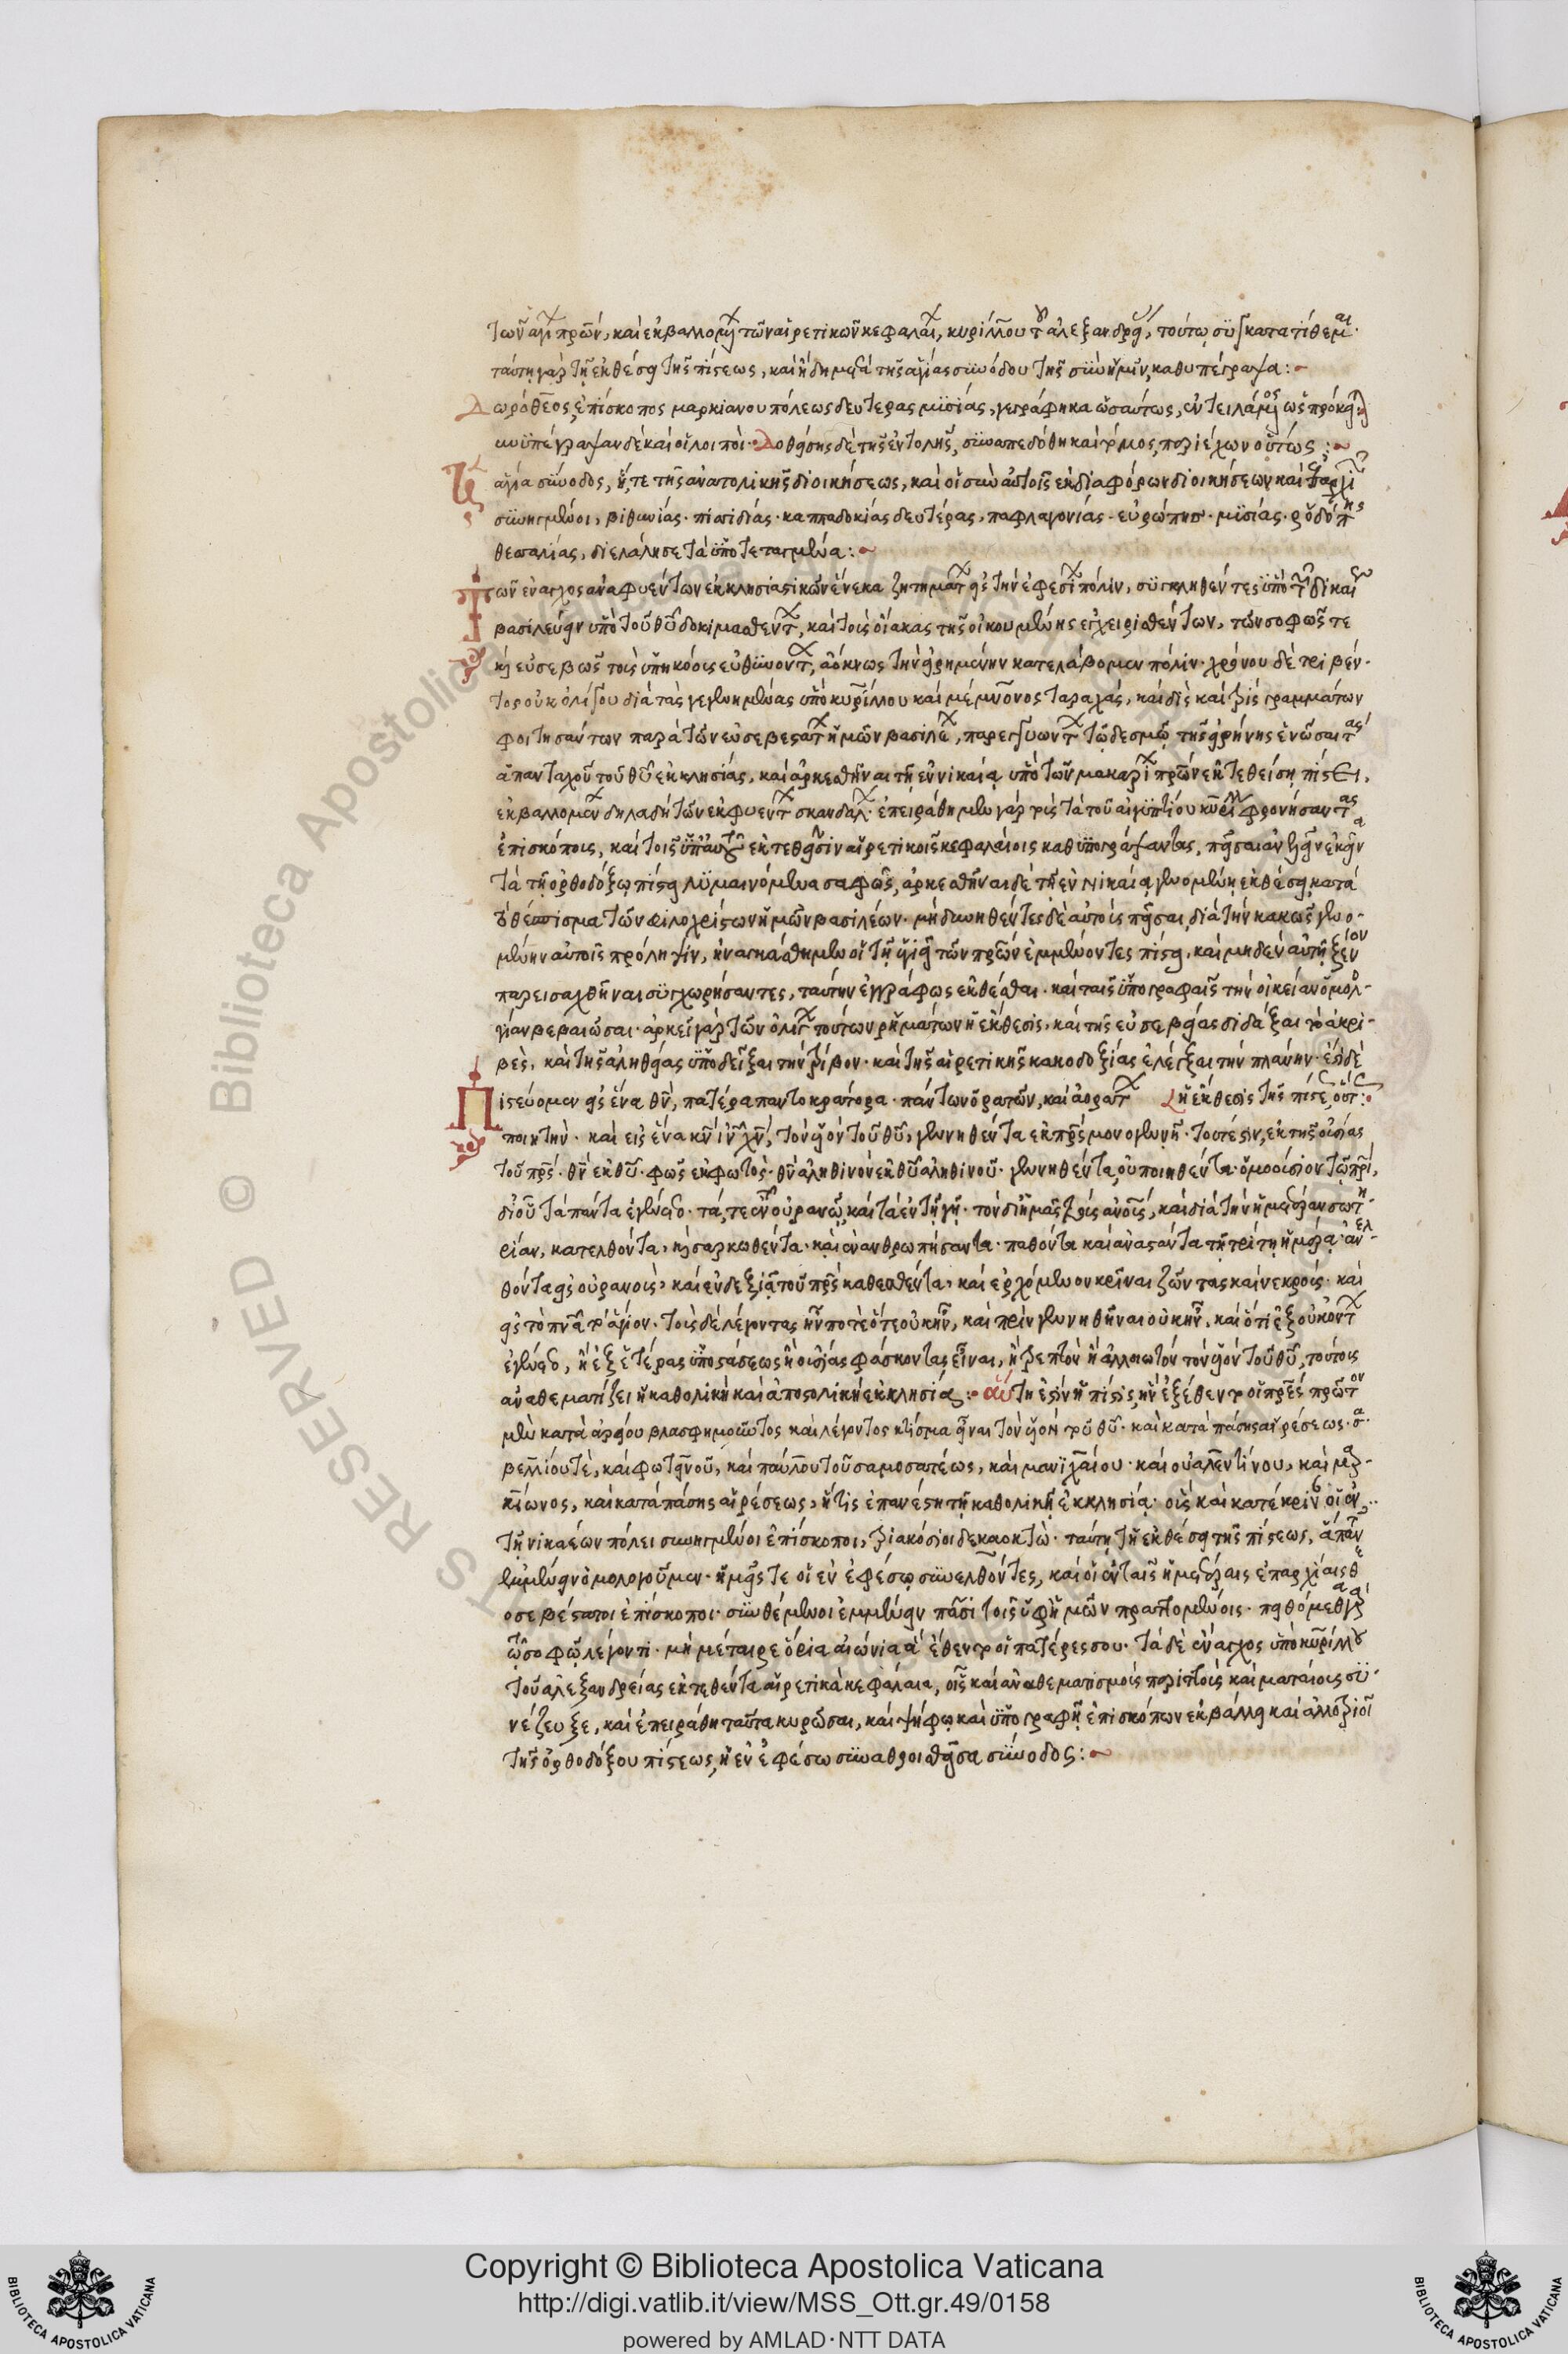 τῶν ἁγίων πρων, καὶ ἐκβαλλομένων τῶν αἱρετικῶν κεφαλαίων, κυρίλλου τοῦ ἀλεξανδρείας, τούτω συγκατατίθεμαι.
ταύτη γὰρ τῇ ἐκθέσει τῆς πίστεως, καὶ ἤδη μετὰ τῆς ἁγίας συνόδου τῆς σὺν ἡμῖν, καθυπέγραψα:
Δωρόθεος ἐπίσκοπος μαρκιανουπόλεως δευτέρας μυσίας, γεγράφηκα ὡσαύτως, ἐντειλάμενος ὡς πρόκειται
ὑπέγραψαν δὲ καὶ οἱ λοιποί. Δοθείσης δὲ τῆς ἐντολῆς, συναπεδόθη καὶ τόμος, περιέχων οὕτως:
ἁγία σύνοδος, ἥ, τε τῆς ἀνατολικῆς διοικήσεως, καὶ οἱ σὺν αὐτοῖς ἐκ διαφόρων διοικήσεων καὶ ἐπαρχιῶν
συνηγμένοι, βιθυνίας. πισιδίας. καππαδοκίας δευτέρας, παφλαγονίας. εὐρώπης. μυσίας. ῥοδόπης
θεσαλίας, διελάλησε τὰ ὑποτεταγμένα:
Τῶν ἔναγχος ἀναφυέντων ἐκκλησιαστικῶν ἕνεκα ζητημάτων εἰς τὴν ἐφεσίων πόλιν, συγκληθέντες ὑπὸ τῶν δικαίως
βασιλεύειν ὑπὸ τοῦ θυ δοκιμασθέντων, καὶ τοὺς οἴακας τῆς οἰκουμένης ἐγχειρισθέντων, τῶν σοφῶς τε
καὶ εὐσεβῶς τοὺς ὑπηκόους εὐθυνόντων, ἀόκνως τὴν εἰρημένην κατελάβομεν πόλιν. χρόνου δὲ τριβέν-
τος οὐκ ὀλίγου διὰ τὰς γεγενημένας ὑπὸ κυρίλλου καὶ μέμνονος ταραχάς, καὶ δὶς καὶ τρὶς γραμμάτων
φοιτησάντων παρὰ τῶν εὐσεβεστάτων ἡμῶν βασιλέων, παρεγγυώντων τῷ δεσμῷ τῆς εἰρήνης ἑνῶσαι τὰς
ἁπανταχοῦ τοῦ θυ ἐκκλησίας, καὶ ἀρκεσθῆναι τῇ ἐν νικαίᾳ ὑπὸ τῶν μακαρίων πρων ἐκτεθείσῃ πίστει,
ἐκβαλλομένων δηλαδὴ τῶν ἐκφυέντων σκανδάλων. ἐπειράθημεν γὰρ τοὺς τὰ τοῦ αἰγυπτίου κυρίλλου φρονήσαντας
ἐπισκόπους, καὶ τοῖς ὑπ' αὐτοῦ ἐκτεθεῖσιν αἱρετικοῖς κεφαλαίοις καθυπογράψαντας, πεῖσαι ἀνελεῖν ἐκεῖνα
τὰ τῇ ὀρθοδόξω πίστει λυμαινόμενα σαφῶς, ἀρκεσθῆναι δὲ τῇ ἐν Νικαίᾳ γενομένῃ ἐκθέσει, κατὰ
τὸ θέσπισμα τῶν φιλοχρίστων ἡμῶν βασιλέων. μὴ δυνηθέντες δὲ αὐτοὺς πεῖσαι, διὰ τὴν κακῶς γενο-
μένην αὐτοῖς πρόληψιν, ἠναγκάσθημεν οἱ τῇ ὑγιεῖ τῶν πρων ἐμμένοντες πίστει, καὶ μηδὲν αὐτῇ ξένον
παρεισαχθῆναι συγχωρήσαντες, ταύτην ἐγγράφως ἐκθέσθαι. καὶ ταῖς ὑπογραφαῖς τὴν οἰκείαν ὁμολο-
γίαν βεβαιῶσαι. ἀρκεῖ γὰρ τῶν ὀλίγων τούτων ῥημάτων ἡ ἔκθεσις, καὶ τῆς εὐσεβείας διδάξαι τὸ ἀκρι-
βὲς, καὶ τῆς ἀληθείας ὑποδεῖξαι τὴν τρίβον. καὶ τῆς αἱρετικῆς κακοδοξίας ἐλέγξαι τὴν πλάνην. ἔστι δὲ
Πιστεύομεν εἰς ἕνα θν, πατέρα παντοκράτορα. πάντων ὁρατῶν, καὶ ἀοράτων ἡ ἔκθεσις τῆς πίστεως, οὕτως:
ποιητήν. καὶ εἰς ἕνα κν ιν χν, τὸν υἱὸν τοῦ θυ, γεννηθέντα ἐκ πρς μονογενῆ. τουτέστιν, ἐκ τῆς οὐσίας
τοῦ πρς. θν ἐκ θυ. φῶς ἐκ φωτός. θν ἀληθινὸν ἐκ θυ ἀληθινοῦ. γεννηθέντα, οὐ ποιηθέντα. ὁμοούσιον τῷ πρι,
δι οὗ τὰ πάντα ἐγένετο. τά, τε ἐν τῷ οὐρανῷ, καὶ τὰ ἐν τῇ γῇ. τὸν δι ἡμᾶς τοὺς ανους, καὶ διὰ τὴν ἡμετέραν σωτη-
ρίαν, κατελθόντα, καὶ σαρκωθέντα. καὶ ἐνανθρωπήσαντα. παθόντα καὶ ἀναστάντα τῇ τρίτῃ ἡμέρᾳ. ἀνελ-
θόντα εἰς οὐρανούς, καὶ ἐν δεξιᾷ τοῦ πρς καθεσθέντα, καὶ ἐρχόμενον κρῖναι ζῶντας καὶ νεκρούς. καὶ
εἰς τὸ πνα τὸ ἅγιον. Τοὺς δὲ λέγοντας ἦν ποτὲ ὅτε οὐκ ἦν, καὶ πρὶν γεννηθῆναι οὐκ ἦν, καὶ ὅτι ἐξ οὐκ ὄντων
ἐγένετο, ἢ ἐξ ἑτέρας ὑποστάσεως ἢ οὐσίας φάσκοντας εἶναι, ἢ τρεπτὸν ἢ ἀλλοιωτὸν τὸν υἱὸν τοῦ θυ, τούτους
ἀναθεματίζει ἡ καθολικὴ καὶ ἀποστολικὴ ἐκκλησία: αὕτη ἐστὶν ἡ πίστις, ἣν ἐξέθεντο οἱ πρες πρῶτον
μὲν κατὰ ἀρείου βλασφημοῦντος καὶ λέγοντος κτίσμα εἶναι τὸν υἱὸν τοῦ θυ. καὶ κατὰ πάσης αἱρέσεως. σα-
βελλίου τὲ, καὶ φωτεινοῦ, καὶ παύλου τοῦ σαμοσατέως, καὶ μανιχαίου. καὶ οὐαλεντίνου, καὶ μαρ-
κίωνος, καὶ κατὰ πάσης αἱρέσεως, ἥτις ἐπανέστη τῇ καθολικῇ ἐκκλησίᾳ. οὓς καὶ κατέκριναν οἱ ἐν
τῇ νικαέων πόλει συνηγμένοι ἐπίσκοποι, τριακόσιοι δεκαοκτώ. ταύτῃ τῇ ἐκθέσει τῆς πίστεως, ἅπαντες
ἐμμένειν ὁμολογοῦμεν. ἡμεῖς τε οἱ ἐν ἐφέσῳ συνελθόντες, καὶ οἱ ἐν ταῖς ἡμετέραις ἐπαρχίαις θε-
οσεβέστατοι ἐπίσκοποι. συνθέμενοι ἐμμένειν πᾶσι τοῖς ὑφ' ἡμῶν πραττομένοις. πειθόμεθα γὰρ
τῷ σοφῷ λέγοντι. μὴ μέταιρε ὅρια αἰώνια ἃ ἔθεντο οἱ πατέρες σου. τὰ δὲ ἔναγχος ὑπὸ κυρίλλου
τοῦ ἀλεξανδρείας ἐκτεθέντα αἱρετικὰ κεφάλαια, οἷς καὶ ἀναθεματισμοὺς περιττοὺς καὶ ματαίους συ-
νέζευξε, καὶ ἐπειράθη ταῦτα κυρῶσαι, καὶ ψήφῳ καὶ ὑπογραφῇ ἐπισκόπων ἐκβάλλει καὶ ἀλλοτριοῖ
τῆς ὀρθοδόξου πίστεως, ἡ ἐν ἐφέσω συναθροισθεῖσα σύνοδος:
Copyright © Biblioteca Apostolica Vaticana
http://digi.vatlib.it/view/MSS_Ott.gr.49/0158
powered by AMLAD·NTT DATA
BIBLIOTECA APOSTOLICA VATICANA
BIBLIOTECA APOSTOLICA VATICANA